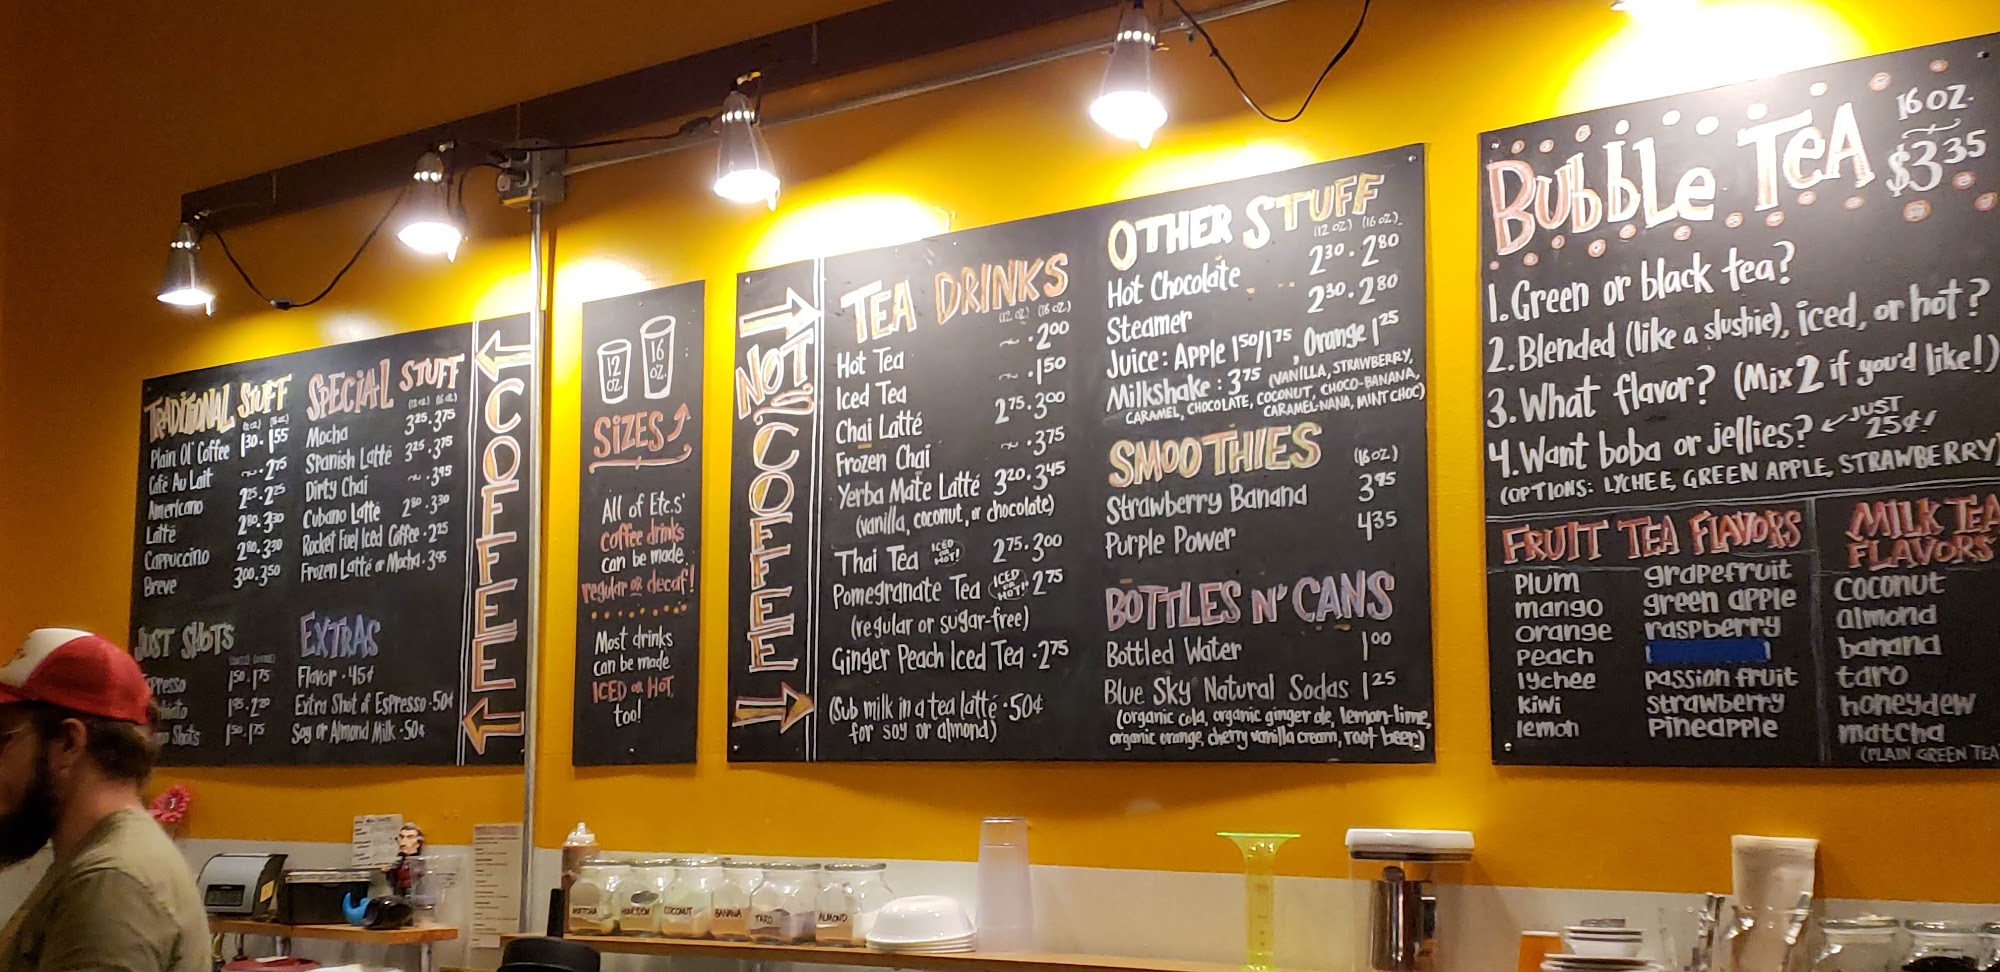 TRADITIONAL STUFF
(12 oz.) (16 oz.)
Plain Ol' Coffee 1.30 · 1.55
Café Au Lait ~ · 2.75
Americano 2.25 · 2.25
Latté 2.80 · 3.30
Cappuccino 2.80 · 3.30
Breve 3.00 · 3.50
JUST SHOTS
1.50 · 1.75
Shots 1.50 · 1.75
SPECIAL STUFF
(12 oz.) (16 oz.)
Mocha 3.25 · 3.75
Spanish Latté 3.25 · 3.75
Dirty Chai ~ · 3.95
Cubano Latte 2.80 · 3.30
Rocket Fuel Iced Coffee · 2.25
Frozen Latté or Mocha · 3.95
EXTRAS
Flavor · 45¢
Extra Shot of Espresso · 50¢
Soy or Almond Milk · 50¢
COFFEE
12 oz.
16 oz.
SIZES
All of Etc.s'
coffee drinks
can be made
regular or decaf!
Most drinks
can be made
ICED or HOT,
too!
NOT COFFEE
TEA DRINKS
(12 oz.) (16 oz.)
Hot Tea ~ · 2.00
Iced Tea ~ · 1.50
Chai Latté 2.75 · 3.00
Frozen Chai ~ · 3.75
Yerba Mate Latté 3.20 · 3.45
(vanilla, coconut, or chocolate)
Thai Tea ICED or HOT! 2.75 · 3.00
Pomegranate Tea ICED or HOT! 2.75
(regular or sugar-free)
Ginger Peach Iced Tea · 2.75
(Sub milk in a tea latté · 50¢
for soy or almond)
OTHER STUFF
(12 oz.) (16 oz.)
Hot Chocolate 2.30 · 2.80
Steamer 2.30 · 2.80
Juice: Apple 1.50/1.75, Orange 1.25
Milkshake: 3.75 (VANILLA, STRAWBERRY,
CARAMEL, CHOCOLATE, COCONUT, CHOCO-BANANA,
CARAMEL-NANA, MINT CHOC)
SMOOTHIES (16 oz.)
Strawberry Banana 3.95
Purple Power 4.35
BOTTLES N' CANS
Bottled Water 1.00
Blue Sky Natural Sodas 1.25
(organic cola, organic ginger ale, lemon-lime,
organic orange, cherry vanilla cream, root beer)
BUBBLE TEA
16 oz.
$3.35
1. Green or black tea?
2. Blended (like a slushie), iced, or hot?
3. What flavor? (Mix 2 if you'd like!)
4. Want boba or jellies? JUST 25¢!
(OPTIONS: LYCHEE, GREEN APPLE, STRAWBERRY)
FRUIT TEA FLAVORS
plum
mango
orange
peach
lychee
kiwi
lemon
grapefruit
green apple
raspberry
passion fruit
strawberry
pineapple
MILK TEA
FLAVORS
coconut
almond
banana
taro
honeydew
matcha
(PLAIN GREEN TEA
MATCHA
HONEYDEW
COCONUT
BANANA
TARO
ALMOND